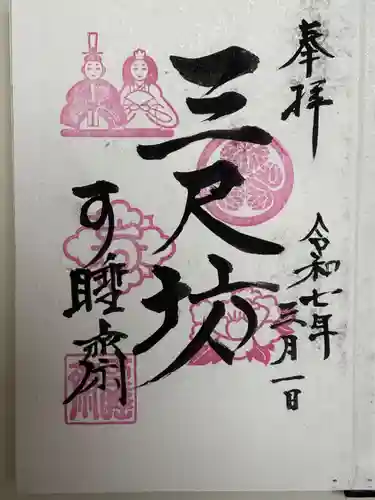 奉拝
令和七年
三月一日
三尺坊
可睡斎